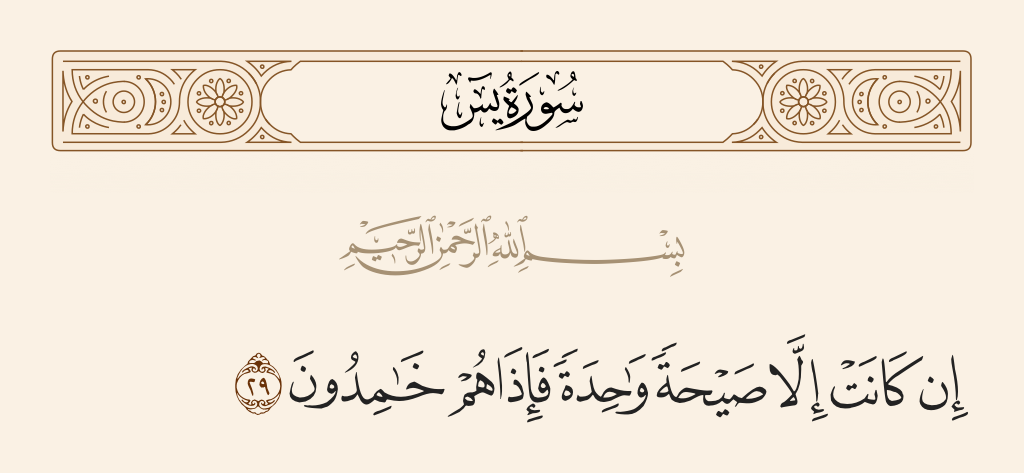 سُورَةُ يسٓ
بِسْمِ ٱللَّهِ ٱلرَّحْمَٰنِ ٱلرَّحِيمِ
إِن كَانَتْ إِلَّا صَيْحَةً وَٰحِدَةً فَإِذَا هُمْ خَٰمِدُونَ ٢٩